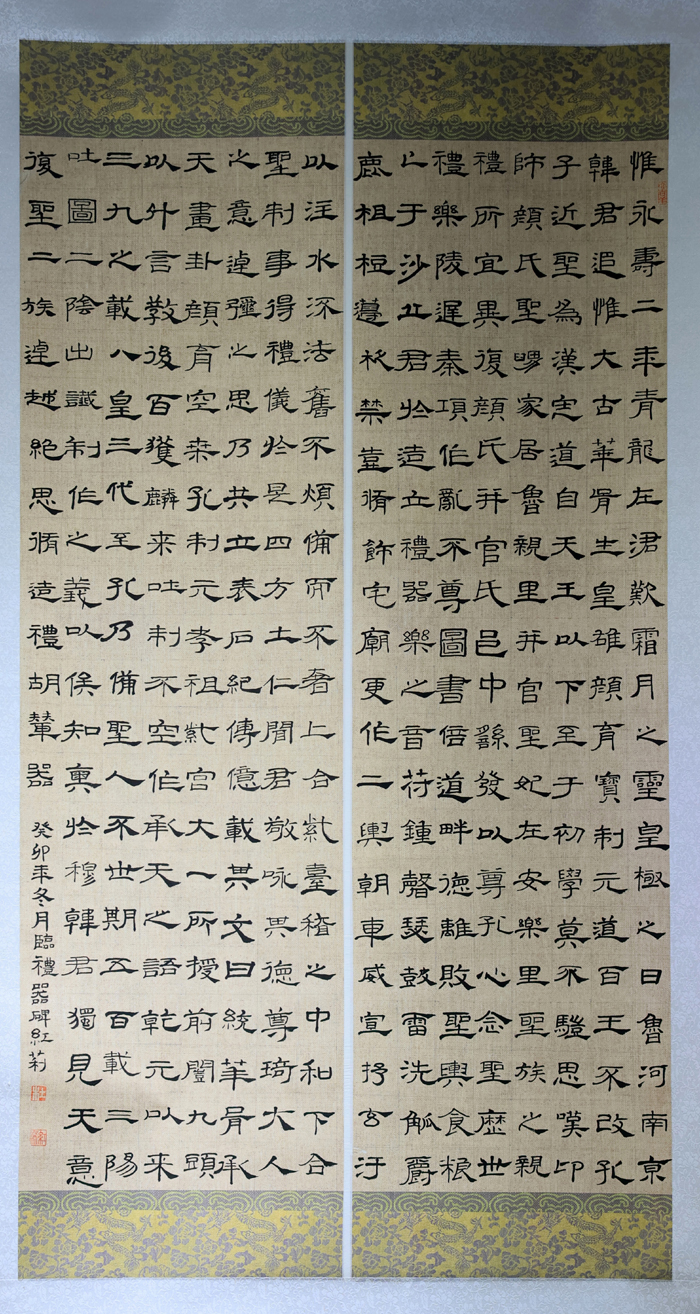 惟永壽二年青龍在涒歎霜月之靈皇極之日魯河南京
韓君追惟大古華胥生皇雄顏育寶制元道百王不改孔
子近聖為漢定道自天王以下至于初學莫不驥思嘆卬
師顏氏聖舅家居魯親里并官聖妃在安樂里聖族之親
禮所宜異復顏氏并官氏邑中繇發以尊孔心念聖歷世
禮樂陵遲秦項作亂不尊圖書倍道畔德離敗聖輿食粮
亡于沙丘君於造立禮器樂之音符鍾磬瑟鼓雷洗觚爵
鹿柤梪籩柉禁壺脩飾宅廟更作二輿朝車威宣抒玄汙
以注水流法舊不煩備而不奢上合紫臺稽之中和下合
聖制事得禮儀於是四方土仁聞君敬咏其德尊琦大人
之意逴彊之思乃共立表石紀傳億載其文曰統華胥承
天畫卦顏育空桑孔制元孝祖紫宮大一所授前闓九頭
以什言教後百獲麟來吐制不空作承天之語乾元以來
三九之載八皇三代至孔乃備聖人不世期五百載三陽
吐圖二陰出讖制作之義以俟知奧於穆韓君獨見天意
復聖二族逴越絕思脩造禮胡輦器
癸卯年冬月臨禮器碑紅莉